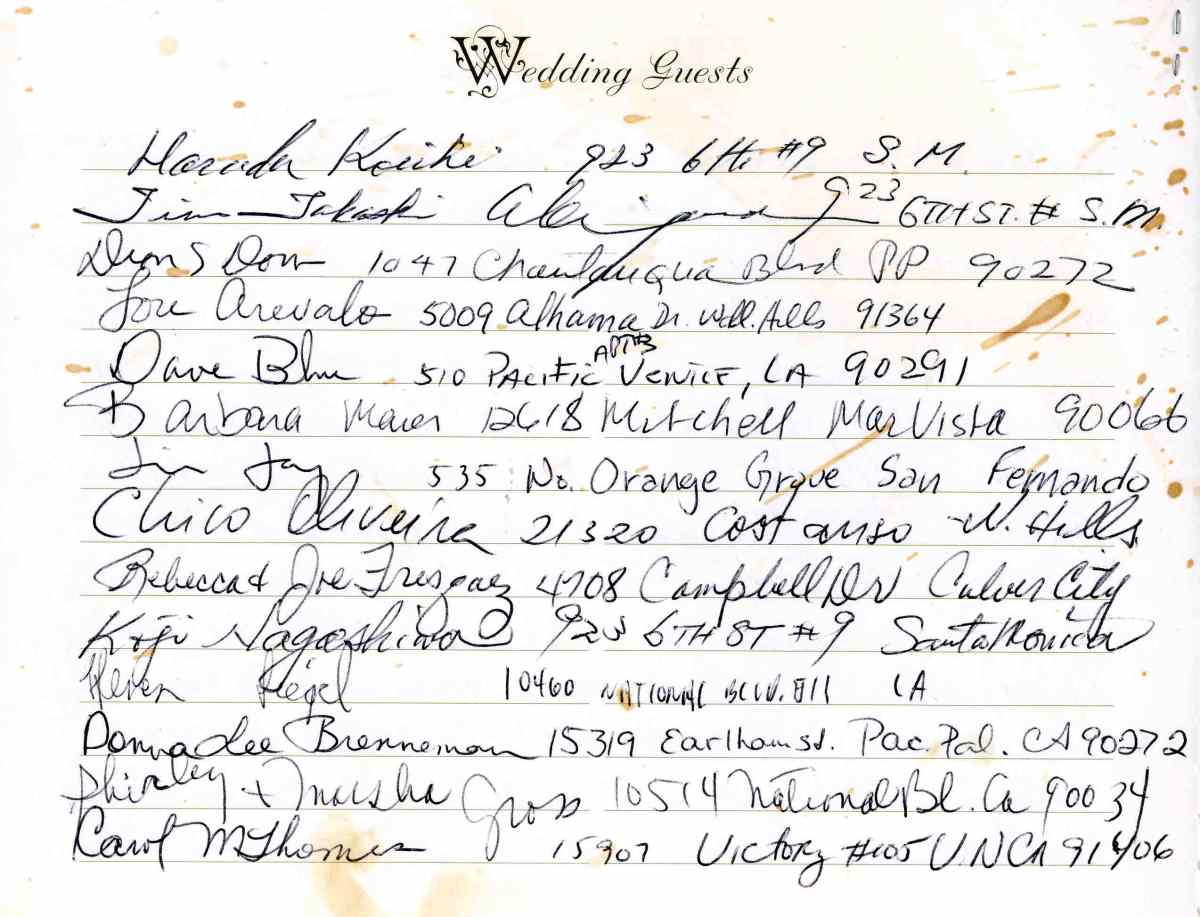 Wedding Guests
Harada Koichi 923 6th #9 S.M.
Jim Takashi 923 6TH ST. # S.M.
Dion S Dow 1047 Chautauqua Blvd PP 90272
Jose Arevalo 5009 Alhama Dr. Wdl. Hills 91364
Dave Blum 510 PACIFIC APT#3 VENICE, LA 90291
Barbara Maier 12618 Mitchell Mar Vista 90066
Jim Jay 535 No. Orange Grove San Fernando
Chico Oliveira 21320 Costanso W. Hills
Rebecca & Joe 4708 Campbell Dr Culver City
Koji Nagashima 923 6TH ST #9 Santa Monica
Riegel 10460 NATIONAL BLVD. #11 LA
Donna Lee Brenneman 15319 Earlham St. Pac. Pal. CA 90272
Shirley + Marsha Gross 10514 National Bl. Ca 90034
Carol M Thomas 15907 Victory #105 V.N CA 91406